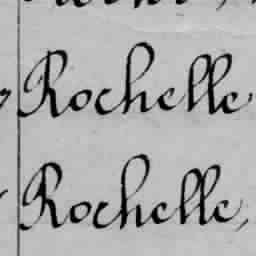 Rochelle
Rochelle,